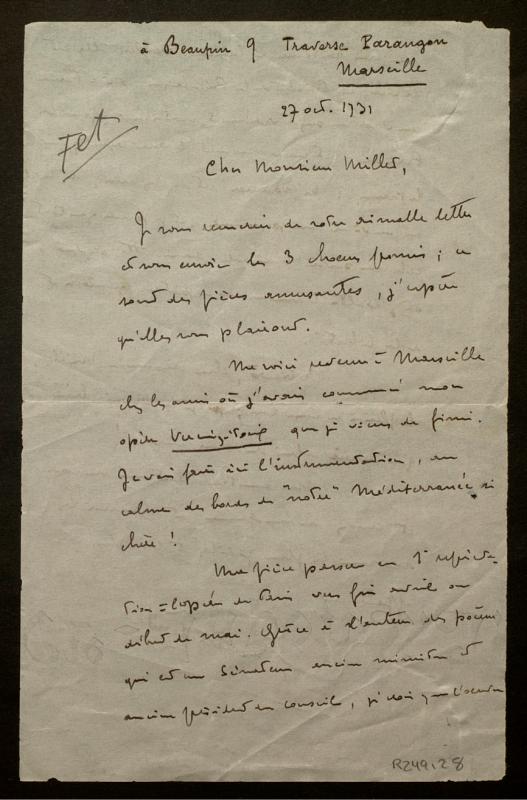 à Beaupin 9 Traverse Parangon
Marseille
27 oct. 1931
Fet
Cher Monsieur Millet,
Je vous remercie de votre aimable lettre
et vous envoie les 3 choeurs promis ; ce
sont des pièces amusantes, j'espère
qu'elles vous plairont.
Me voici revenu à Marseille
chez les amis où j'avais commencé mon
opéra Vercingétorix que je viens de finir.
Je vais faire ici l'instrumentation, au
calme des bords de "notre" Méditerranée si
chère !
Ma pièce passera en 1e représenta-
tion à l'opéra de Paris vers fin avril ou
début de mai. Grâce à l'auteur des poème
qui est un Sénateur ancien ministre et
ancien président du conseil, je crois que
R249.28